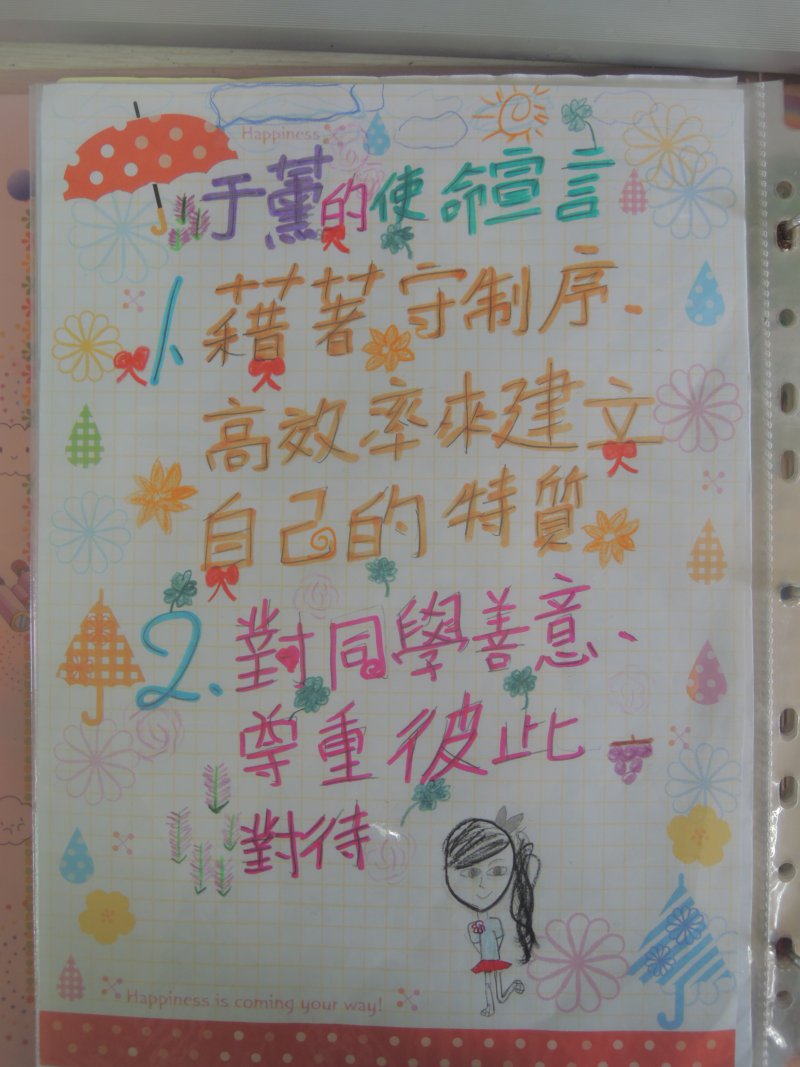 Happiness
于薰的使命宣言
1. 藉著守制序、
高效率來建立
自己的特質
2. 對同學善意、
尊重彼此
對待
Happiness is coming your way!